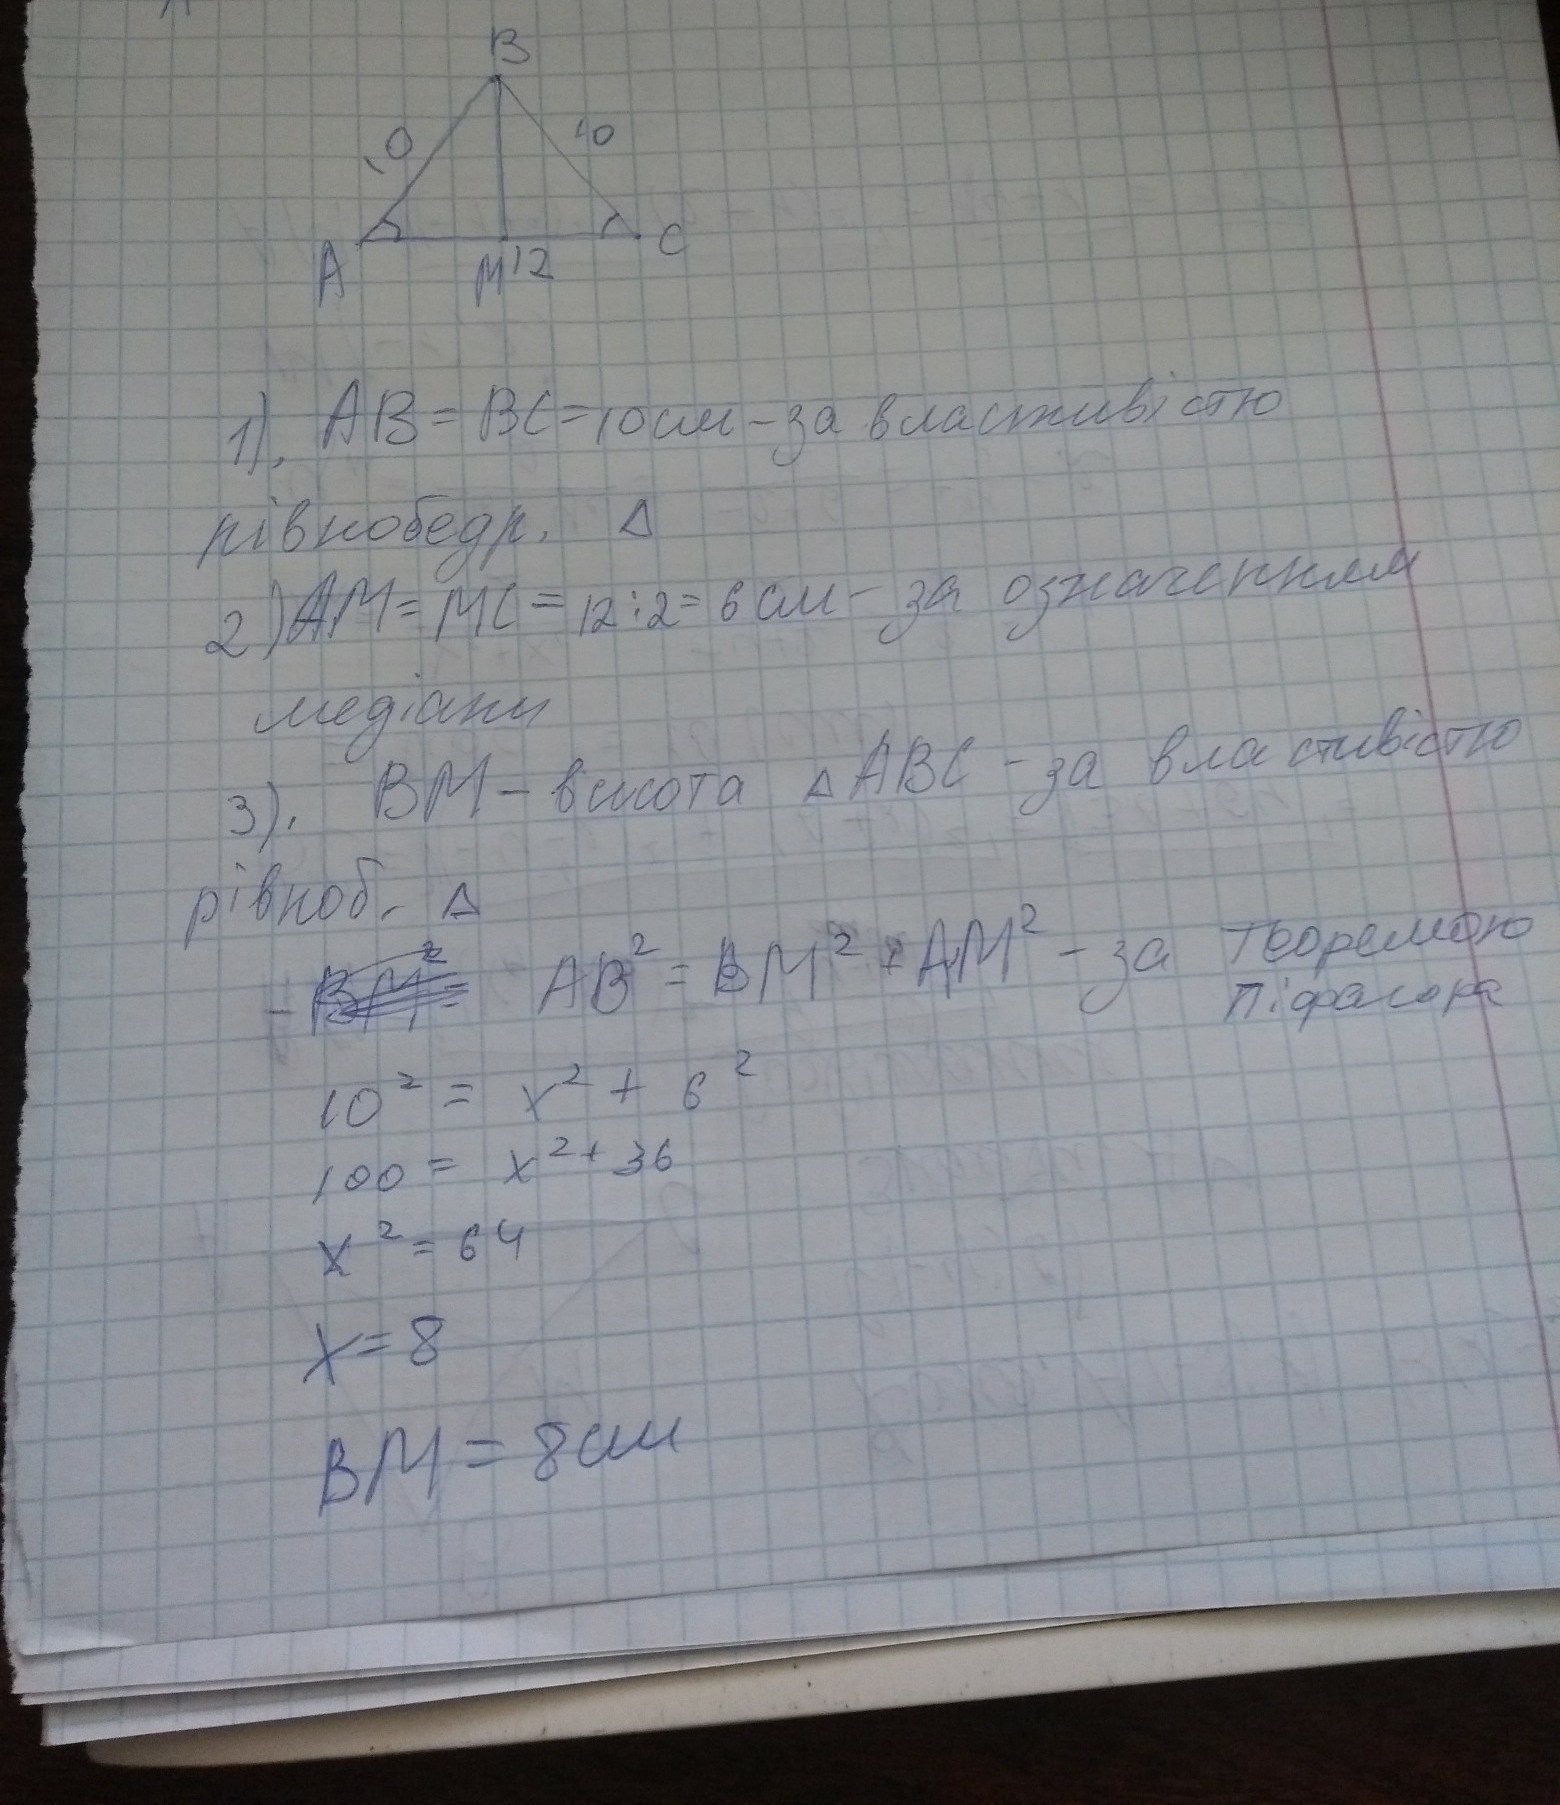 B
10 10
A M 12 C
1). AB = BC = 10 см - за властивістю
рівнобедр. Δ
2) AM = MC = 12 : 2 = 6 см - за означенням
медіани
3). BM - висота Δ ABC - за властивістю
рівноб. Δ
AB² = BM² + AM² - за теоремою
Піфагора
10² = x² + 6²
100 = x² + 36
x² = 64
x = 8
BM = 8 см